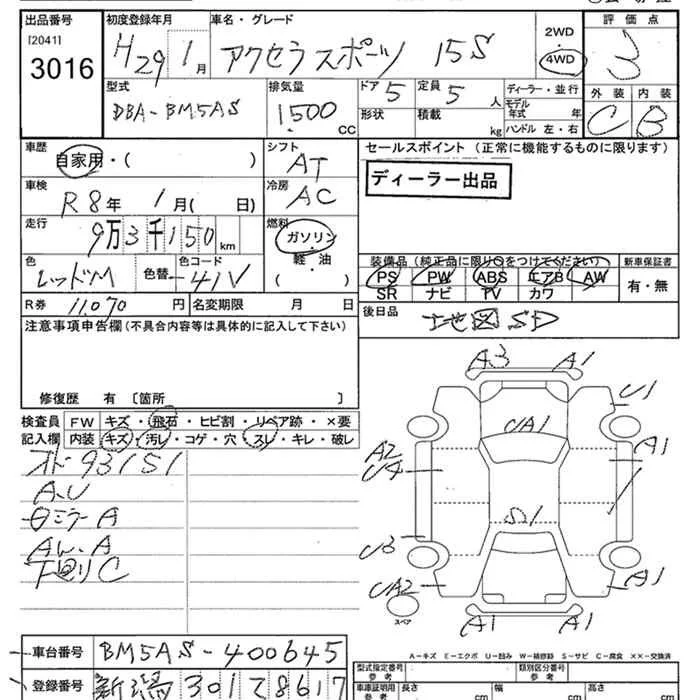 出品番号
[2041]
3016
初度登録年月
H29 1月
車名・グレード
アクセラスポーツ 15S
2WD
4WD
評価点
3
型式
DBA-BM5AS
排気量
1500 CC
ドア 5
形状
定員 5 人
積載 kg
ディーラー・並行
モデル年式 年
ハンドル 左・右
外装 C
内装 B
車歴
自家用・( )
シフト
AT
セールスポイント (正常に機能するものに限ります)
ディーラー出品
車検
R8年 1月( 日)
冷房
AC
走行
9万3千150 km
燃料
ガソリン・軽・油
( )
色
レッドM
色替
色コード
41V
装備品 (純正品に限り○をつけてください)
新車保証書
PS PW ABS エアB AW
SR ナビ TV カワ
有・無
R券 11,070 円
名変期限 月 日
後日品 地図SD
注意事項申告欄 (不具合内容等は具体的に記入して下さい)
修復歴 有 〔箇所 〕
検査員記入欄
FW キズ・飛石・ヒビ割・リペア跡・×要
内装 キズ・汚レ・コゲ・穴・スレ・キレ・破レ
オド93151
A.U
ロミラーA
AW.A
下廻りC
A3 A1
U1
UA1
A2
U4
A1
S1
U3
UA2
A1
スペア
A1 A1
A-キズ E-エクボ U-凹み W-補修跡 S-サビ C-腐食 ××-交換済
車台番号 BM5AS-400645
登録番号 新潟 301 て 8617
型式指定番号 参考
類別区分番号 参考
車庫証明用 参考
長さ cm
幅 cm
高さ cm